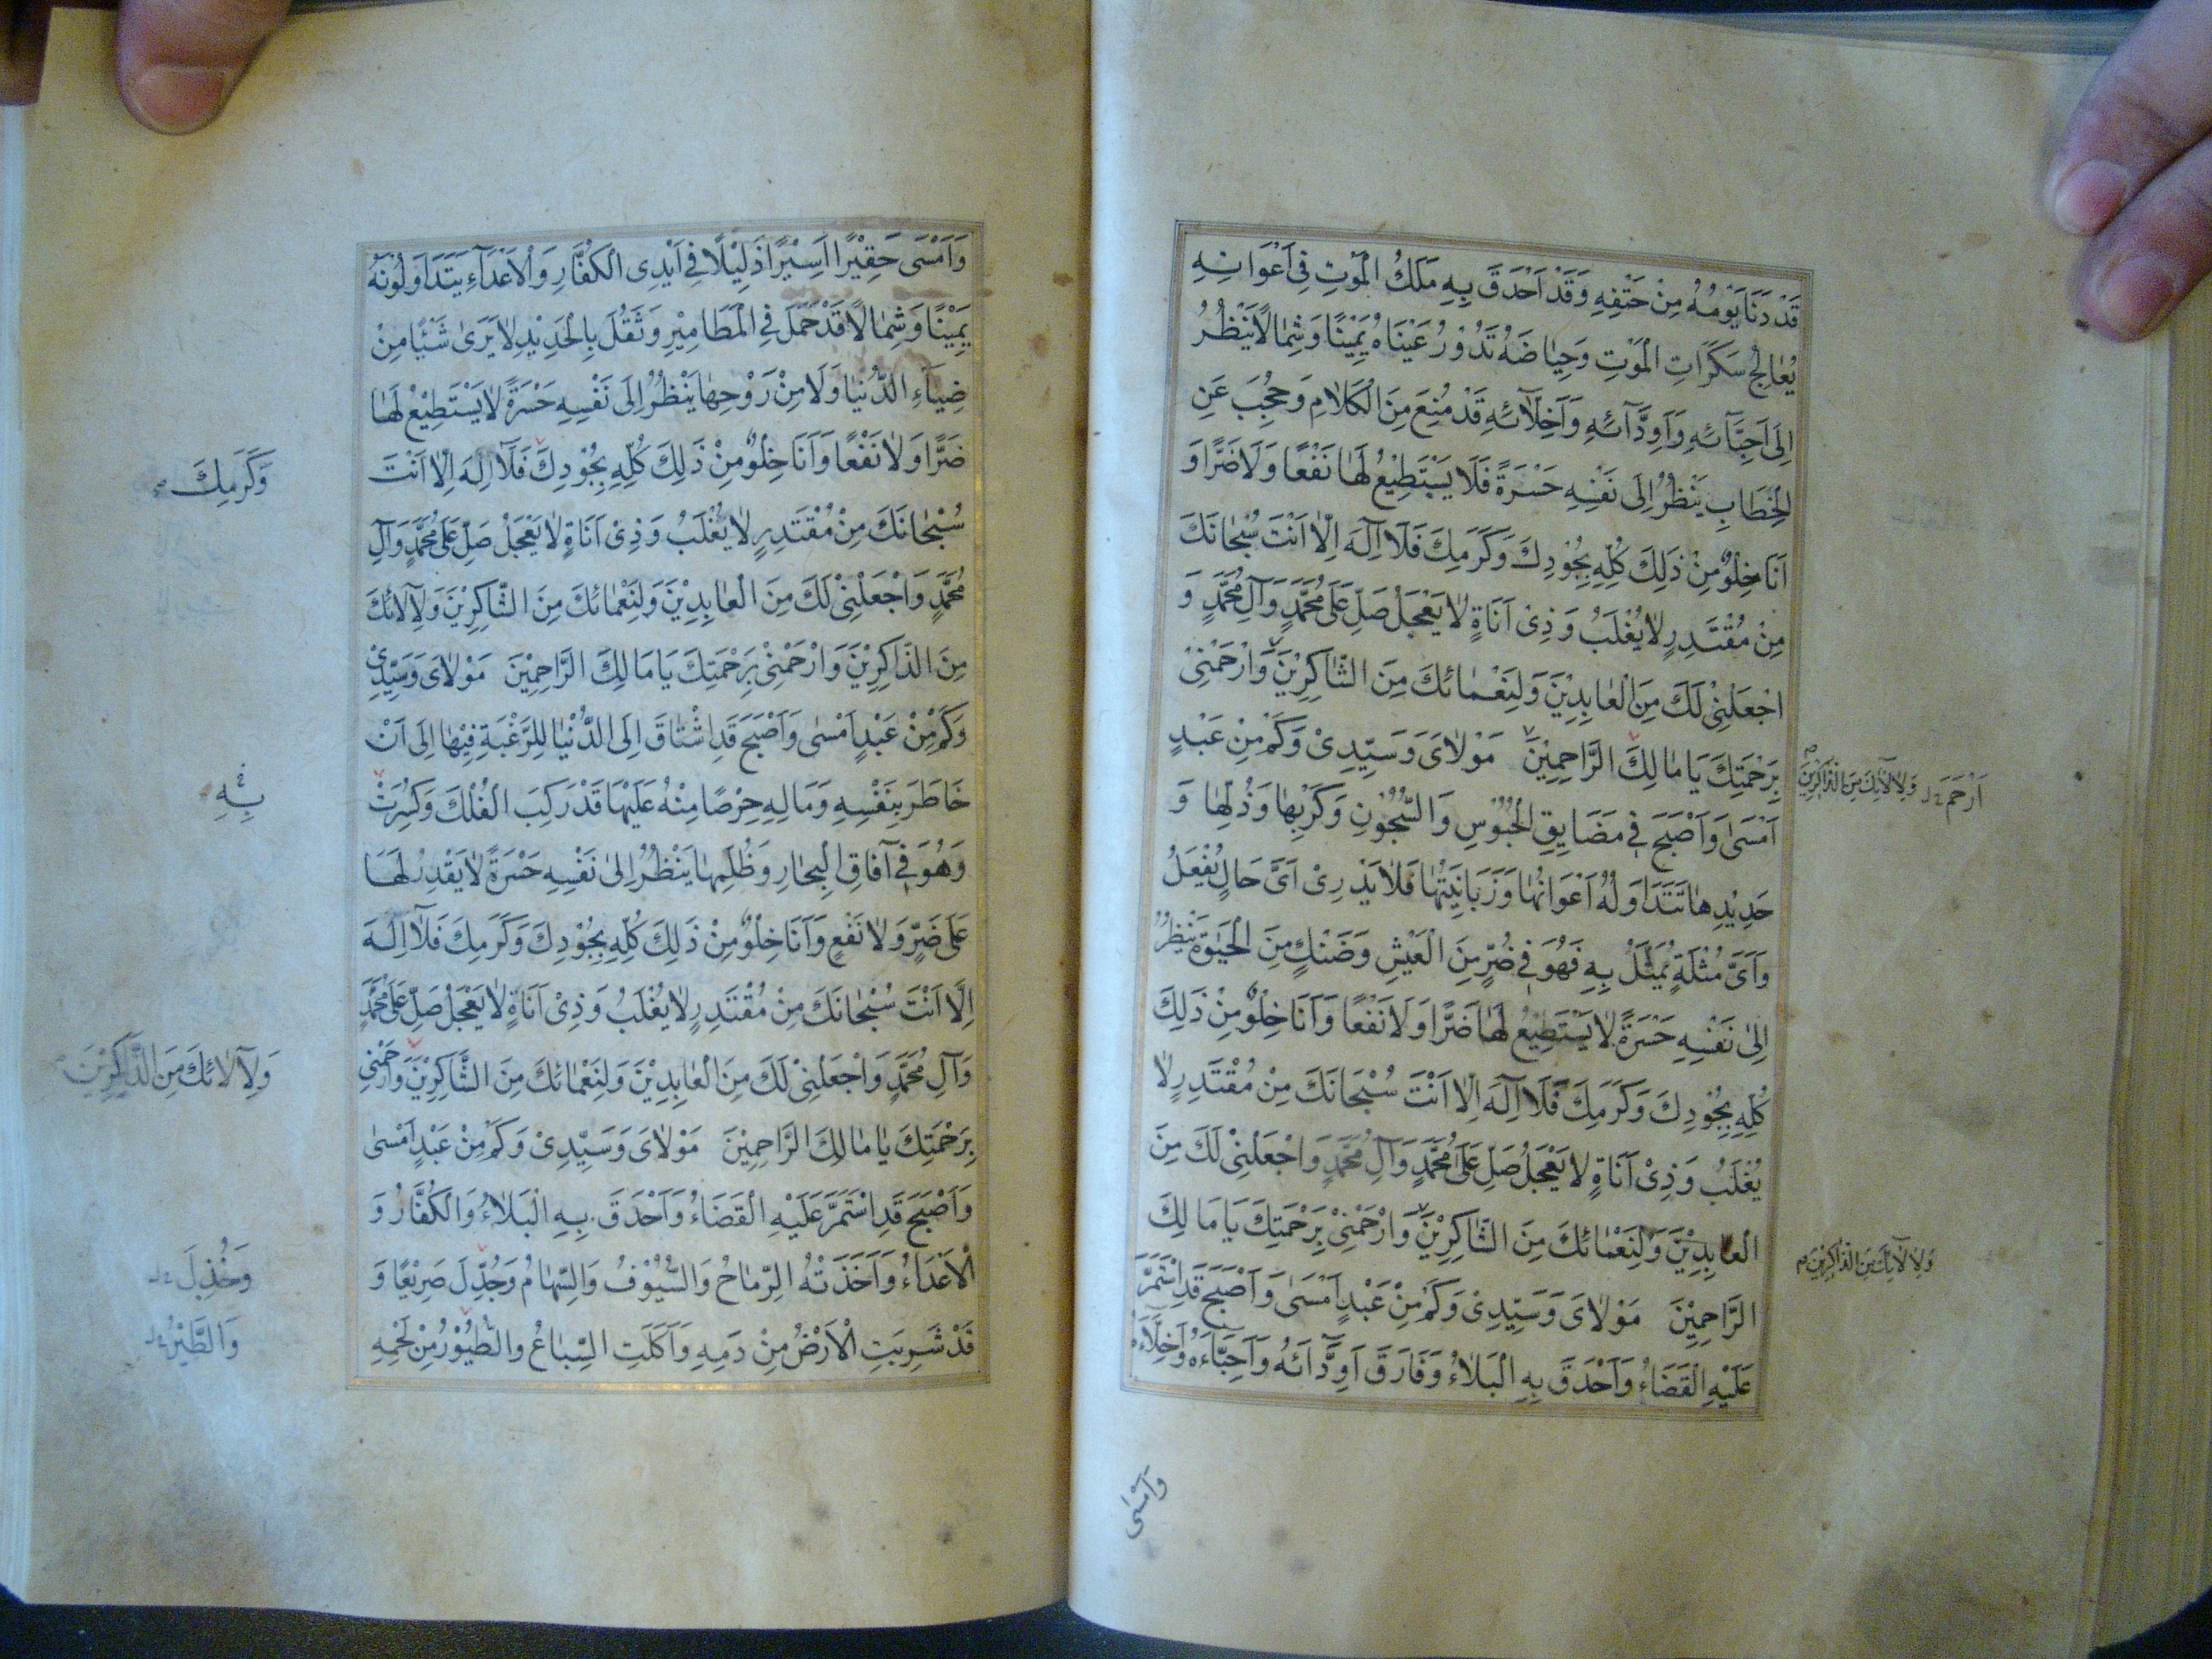 قَدْ دَنَا يَوْمُهُ مِنْ حَتْفِهِ وَقَدْ اَحْدَقَ بِهِ مَلَكُ الْمَوْتِ فِى اَعْوَانِهِ
يُعٰالِجُ سَكَرَاتِ الْمَوْتِ وَحِيٰاضَهُ تَدُوْرُ عَيْنَاهُ يَمِيْنًا وَشِمٰالًا يَنْظُرُ
اِلٰى اَحِبَّآئِهِ وَاَوِدَّآئِهِ وَاَخِلَّآئِهِ قَدْ مُنِعَ مِنَ الْكَلَامِ وَحُجِبَ عَنِ
الْخِطَابِ يَنْظُرُ اِلَى نَفْسِهِ حَسْرَةً فَلَا يَسْتَطِيْعُ لَهٰا نَفْعًا وَلَا ضَرًّا وَ
اَنَا خِلْوٌ مِنْ ذٰلِكَ كُلِّهِ بِجُوْدِكَ وَكَرَمِكَ فَلَا اِلٰهَ اِلّٰا اَنْتَ سُبْحٰانَكَ
مِنْ مُقْتَدِرٍ لٰا يُغْلَبُ وَذِىْ اَنَاةٍ لٰا يَعْجَلُ صَلِّ عَلٰى مُحَمَّدٍ وَآلِ مُحَمَّدٍ وَ
اجْعَلْنِىْ لَكَ مِنَ الْعٰابِدِيْنَ وَلِنَعْمٰائِكَ مِنَ الشّٰاكِرِيْنَ وَارْحَمْنِىْ
بِرَحْمَتِكَ يَا مٰالِكَ الرَّاحِمِيْنَ مَوْلٰاىَ وَسَيِّدِىْ وَكَمْ مِنْ عَبْدٍ
اَرْحَمَ وَلِآلٰائِكَ مِنَ الذَّاكِرِيْنَ
اَمْسٰى وَاَصْبَحَ فِى مَضَايِقِ الْحُبُوْسِ وَالسُّجُوْنِ وَكَرْبِهٰا وَذُلِّهٰا وَ
حَدِيْدِهٰا تَتَدَاوَلُهُ اَعْوَانُهٰا وَزَبَانِيَتُهٰا فَلٰا يَدْرِىْ اَىَّ حَالٍ يُفْعَلُ
وَاَىَّ مُثْلَةٍ يُمَثَّلُ بِهِ فَهُوَ فِى ضُرٍّ مِنَ الْعَيْشِ وَضَنْكٍ مِنَ الْحَيٰوةِ يَنْظُرُ
اِلٰى نَفْسِهِ حَسْرَةً لٰا يَسْتَطِيْعُ لَهٰا ضَرًّا وَلَا نَفْعًا وَاَنَا خِلْوٌ مِنْ ذٰلِكَ
كُلِّهِ بِجُوْدِكَ وَكَرَمِكَ فَلَا اِلٰهَ اِلّٰا اَنْتَ سُبْحَانَكَ مِنْ مُقْتَدِرٍ لٰا
يُغْلَبُ وَذِىْ اَنَاةٍ لٰا يَعْجَلُ صَلِّ عَلٰى مُحَمَّدٍ وَآلِ مُحَمَّدٍ وَاجْعَلْنِىْ لَكَ مِنَ
الْعٰابِدِيْنَ وَلِنَعْمٰائِكَ مِنَ الشّٰاكِرِيْنَ وَارْحَمْنِىْ بِرَحْمَتِكَ يَا مَالِكَ
وَلِآلٰائِكَ مِنَ الذّٰاكِرِيْنَ
الرَّاحِمِيْنَ مَوْلٰاىَ وَسَيِّدِىْ وَكَمْ مِنْ عَبْدٍ اَمْسٰى وَاَصْبَحَ قَدِ اسْتَمَرَّ
عَلَيْهِ الْقَضَاءُ وَاَحْدَقَ بِهِ الْبَلٰاءُ وَفَارَقَ اَوِدَّآئَهُ وَاَحِبَّاءَهُ وَاَخِلَّاءَهُ
وَاَمْسٰى
وَاَمْسَى حَقِيْرًا اَسِيْرًا ذَلِيْلًا فِى اَيْدِى الْكُفَّارِ وَالْاَعْدَآءِ يَتَدَاوَلُوْنَهُ
يَمِيْنًا وَشِمٰالًا قَدْ حُمِلَ فِى الْمَطَامِيْرِ وَثُقِّلَ بِالْحَدِيْدِ لٰا يَرَىٰ شَيْئًا مِنْ
ضِيَآءِ الدُّنْيٰا وَلَا مِنْ رَوْحِهٰا يَنْظُرُ اِلَى نَفْسِهِ حَسْرَةً لٰا يَسْتَطِيْعُ لَهٰا
ضَرًّا وَلٰا نَفْعًا وَاَنَا خِلْوٌ مِنْ ذَلِكَ كُلِّهِ بِجُوْدِكَ فَلَآ اِلٰهَ اِلّٰا اَنْتَ
وَكَرَمِكَ
سُبْحٰانَكَ مِنْ مُقْتَدِرٍ لٰا يُغْلَبُ وَذِىْ اَنَاةٍ لٰا يَعْجَلُ صَلِّ عَلٰى مُحَمَّدٍ وَآلِ
مُحَمَّدٍ وَاجْعَلْنِىْ لَكَ مِنَ الْعٰابِدِيْنَ وَلِنَعْمٰائِكَ مِنَ الشّٰاكِرِيْنَ وَلِآلٰائِكَ
مِنَ الذّٰاكِرِيْنَ وَارْحَمْنِىْ بِرَحْمَتِكَ يَا مَالِكَ الرَّاحِمِيْنَ مَوْلٰاىَ وَسَيِّدِىْ
وَكَمْ مِنْ عَبْدٍ اَمْسٰى وَاَصْبَحَ قَدِ اشْتٰاقَ اِلَى الدُّنْيٰا لِلرَّغْبَةِ فِيْهٰا اِلَى اَنْ
خَاطَرَ بِنَفْسِهِ وَمَالِهِ حِرْصًا مِنْهُ عَلَيْهٰا قَدْ رَكِبَ الْفُلْكَ وَكُسِرَتْ
بِهِ
وَهُوَ فِى آفَاقِ الْبِحَارِ وَظُلَمِهٰا يَنْظُرُ اِلىٰ نَفْسِهِ حَسْرَةً لٰا يَقْدِرُ لَهَا
عَلٰى ضَرٍّ وَلَا نَفْعٍ وَاَنَا خِلْوٌ مِنْ ذَلِكَ كُلِّهِ بِجُوْدِكَ وَكَرَمِكَ فَلَآ اِلٰهَ
اِلَّا اَنْتَ سُبْحٰانَكَ مِنْ مُقْتَدِرٍ لٰا يُغْلَبُ وَذِىْ اَنَاةٍ لٰا يَعْجَلُ صَلِّ عَلٰى مُحَمَّدٍ
وَآلِ مُحَمَّدٍ وَاجْعَلْنِىْ لَكَ مِنَ الْعٰابِدِيْنَ وَلِنَعْمٰائِكَ مِنَ الشّٰاكِرِيْنَ وَارْحَمْنِى
وَلِآلٰائِكَ مِنَ الذَّاكِرِيْنَ
بِرَحْمَتِكَ يٰا مٰالِكَ الرَّاحِمِيْنَ مَوْلٰاىَ وَسَيِّدِىْ وَكَمْ مِنْ عَبْدٍ اَمْسٰى
وَاَصْبَحَ قَدِ اسْتَمَرَّ عَلَيْهِ الْقَضَاءُ وَاَحْدَقَ بِهِ الْبَلٰاءُ وَالْكُفَّارُ وَ
الْاَعْدَاءُ وَاَخَذَتْهُ الرِّمٰاحُ وَالسُّيُوْفُ وَالسِّهٰامُ وَجُدِّلَ صَرِيْعًا وَ
وَخُذِلَ
قَدْ شَرِبَتِ الْاَرْضُ مِنْ دَمِهِ وَاَكَلَتِ السِّبٰاعُ وَالطُّيُوْرُ مِنْ لَحْمِهِ
وَالطَّيْرُ